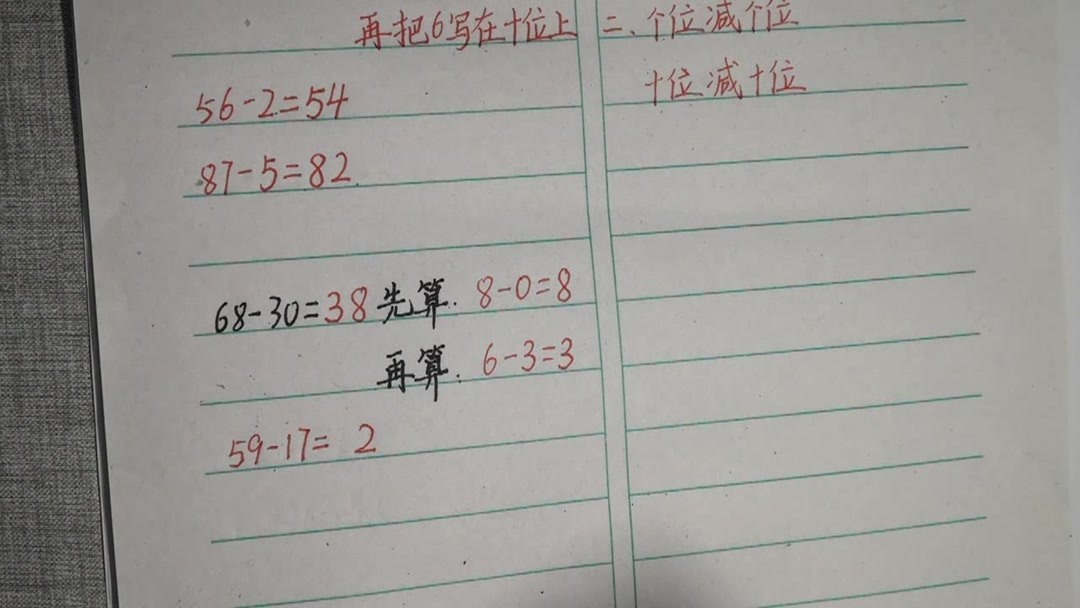 再把6写在十位上
56-2=54
87-5=82
68-30=38 先算. 8-0=8
再算: 6-3=3
59-17= 2
二、个位减个位
十位减十位